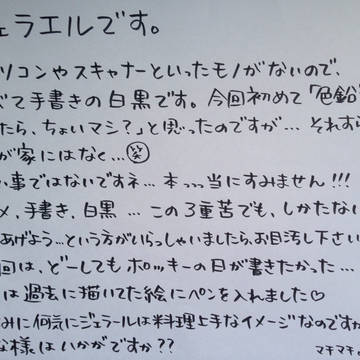 ェラエルです。
ソコンやスキャナーといったモノがないので、
べて手書きの白黒です。今回初めて「色鉛
たら、ちょいマシ?」と思ったのですが…それすら
が家にはなく…笑
い事ではないですネ…本っっっ当にすみません!!!
メ、手書き、白黒…この3重苦でも、しかたない
あげよう…という方がいらっしゃいましたら、お目汚し下さい
回は、どーしてもポッキーの日が書きたかった…
は過去に描いてた絵にペンを入れました♡
みに何気にジェラールは料理上手なイメージなのですか
な様はいかがですか??
マチマチ